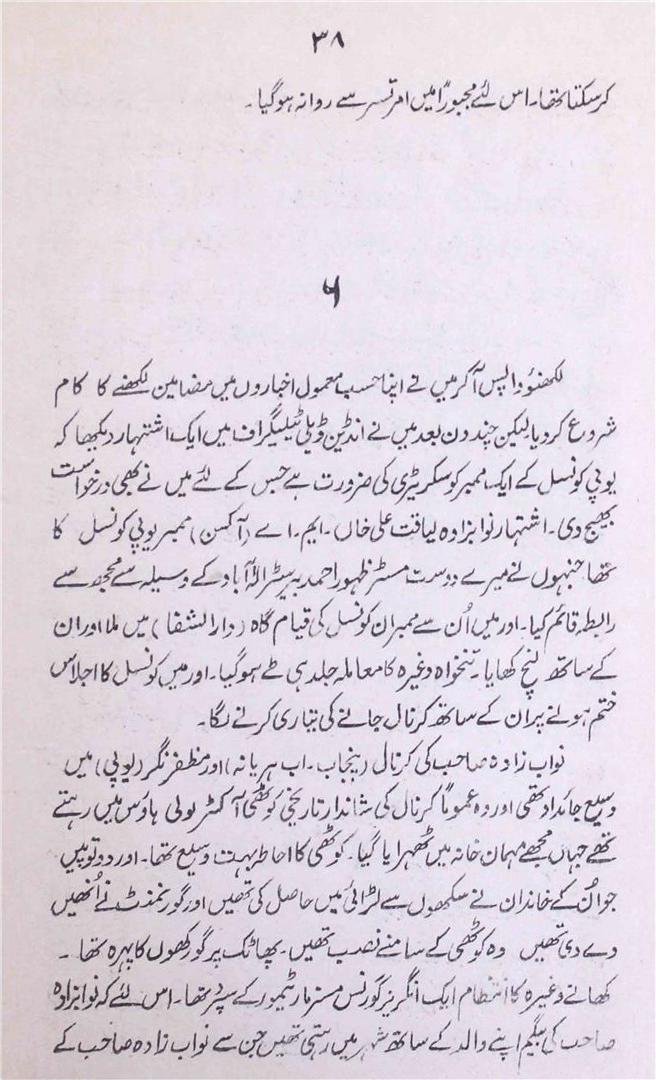 ۳۸
کرسکتا تھا۔ اس لئے مجبوراً میں امرتسر سے روانہ ہوگیا۔
۵
لکھنؤ واپس آکر میں نے اپنا حسب معمول اخباروں میں مضامین لکھنے کا کام
شروع کردیا لیکن چند دن بعد میں نے انڈین ڈیلی ٹیلیگراف میں ایک اشتہار دیکھا کہ
یوپی کونسل کے ایک ممبر کو سکریٹری کی ضرورت ہے جس کے لئے میں نے بھی درخواست
بھیج دی۔ اشتہار نوابزادہ لیاقت علی خاں۔ ایم۔ اے (آکسن) ممبر یوپی کونسل کا
تھا جنہوں نے میرے دوست مسٹر ظہور احمد بیرسٹر الٰہ آباد کے وسیلہ سے مجھ سے
رابطہ قائم کیا۔ اور میں اُن سے ممبران کونسل کی قیام گاہ (دارالشفا) میں ملا اور ان
کے ساتھ لنچ کھایا۔ تنخواہ وغیرہ کا معاملہ جلد ہی طے ہوگیا۔ اور میں کونسل کا اجلاس
ختم ہونے پر ان کے ساتھ کرنال جانے کی تیاری کرنے لگا۔
نواب زادہ صاحب کی کرنال (پنجاب۔ اب ہریانہ) اور مظفر نگر (یوپی) میں
وسیع جائداد تھی اور وہ عموماً کرنال کی شاندار تاریخی کوٹھی آکٹرلونی ہاؤس میں رہتے
تھے جہاں مجھے مہمان خانہ میں ٹھہرایا گیا۔ کوٹھی کا احاطہ بہت وسیع تھا۔ اور دو توپیں
جو اُن کے خاندان نے سکھوں سے لڑائی میں حاصل کی تھیں اور گورنمنٹ نے اُنھیں
دے دی تھیں وہ کوٹھی کے سامنے نصب تھیں۔ پھاٹک پر گورکھوں کا پہرہ تھا۔
کھانے وغیرہ کا انتظام ایک انگریز گورنس مسز مارٹیمور کے سپرد تھا۔ اس لئے کہ نوابزادہ
صاحب کی بیگم اپنے والد کے ساتھ شہر میں رہتی تھیں جن سے نواب زادہ صاحب کے